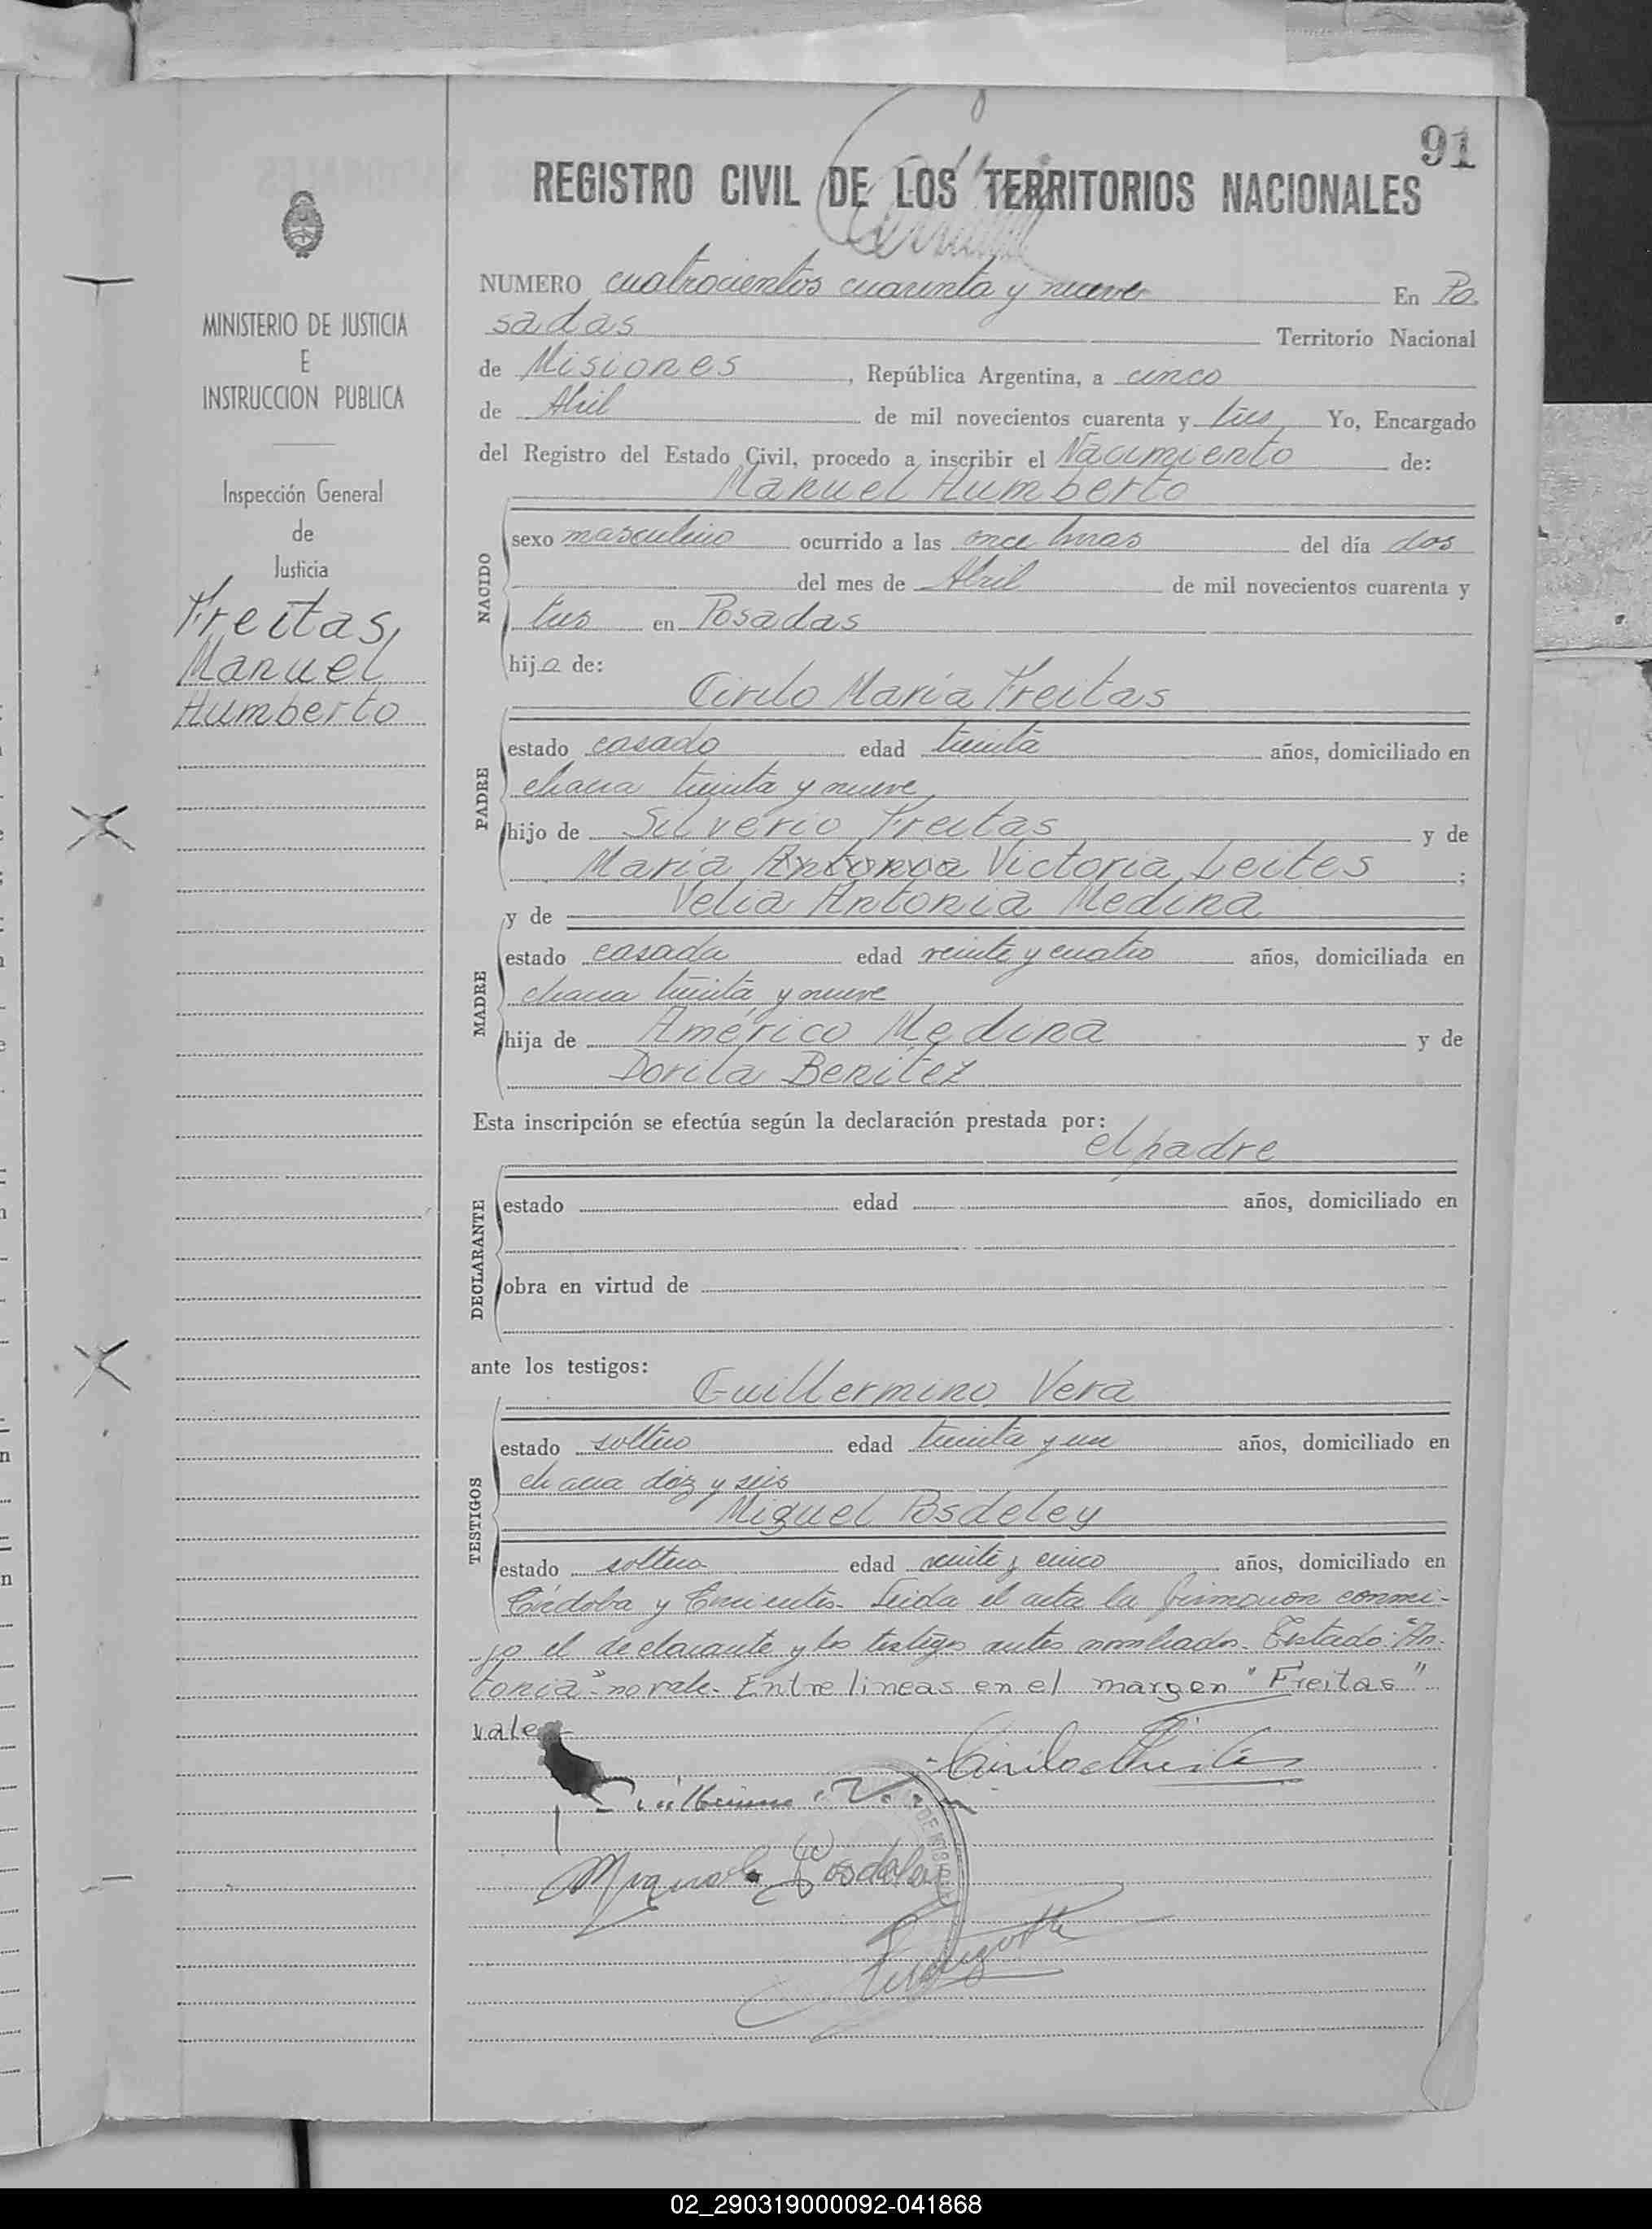 91
REGISTRO CIVIL DE LOS TERRITORIOS NACIONALES
MINISTERIO DE JUSTICIA
E
INSTRUCCION PUBLICA
Inspección General
de
Justicia
Freitas,
Manuel
Humberto
NUMERO cuatrocientos cuarenta y nueve En Po
sadas Territorio Nacional
de Misiones, República Argentina, a cinco
de Abril de mil novecientos cuarenta y tres Yo, Encargado
del Registro del Estado Civil, procedo a inscribir el Nacimiento de:
Manuel Humberto
NACIDO
sexo masculino ocurrido a las once horas del día dos
del mes de Abril de mil novecientos cuarenta y
tres en Posadas
hijo de:
Cirilo María Freitas
PADRE
estado casado edad treinta años, domiciliado en
chacra treinta y nueve
hijo de Silverio Freitas y de
María Antonia Victoria Leites;
y de Velia Antonia Medina
MADRE
estado casada edad veinte y cuatro años, domiciliada en
chacra treinta y nueve
hija de Américo Medina y de
Dorila Benítez
Esta inscripción se efectúa según la declaración prestada por:
el padre
DECLARANTE
estado edad años, domiciliado en
obra en virtud de
ante los testigos:
Guillermino Vera
TESTIGOS
estado soltero edad treinta y un años, domiciliado en
chacra diez y seis
Miguel Posdeley
estado soltero edad veinte y cinco años, domiciliado en
Córdoba y Corrientes. Leida el acta la firmaron conmi-
go el declarante y los testigos antes nombrados. Testado: "An-
tonia" no vale. Entre lineas en el margen "Freitas"
vale
02_290319000092-041868